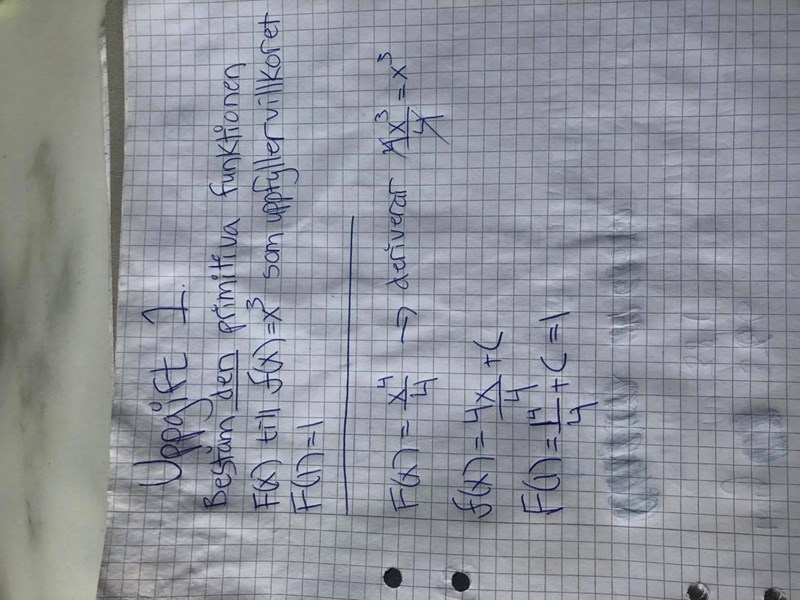 Uppgift 1.
Bestäm den primitiva funktionen
F(x) till f(x)=x³ som uppfyller villkoret
F(1)=1
F(x) = x⁴/4 → deriverar 4x³/4 = x³
f(x) = 4x/4 + C
F(1) = 1⁴/4 + C = 1